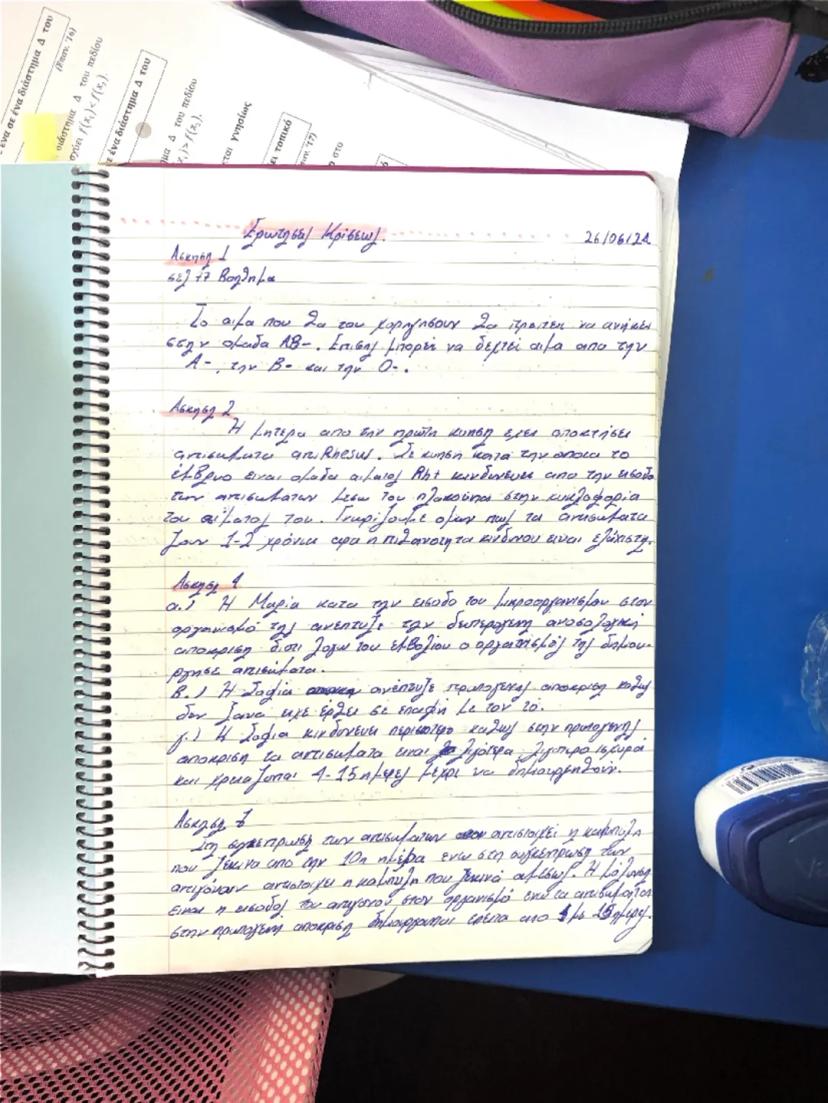 ένα σε ένα διάστημα Δ του
(Επαν. '16)
διάστημα Δ του πεδίου
ισχύει f(x₁) < f(x₂).
ε ένα διάστημα Δ του
μα Δ του πεδίου
x₁) > f(x₂).
εται γνησίως
ει τοπικό
αν. '17)
η στο
Ερωτησεις Κρίσεως.
26/06/24
Ασκηση 1
σελ 77 Βοηθημα
Το αιμα που θα του χορηγησουν θα πρεπει να ανήκει
στην ομαδα ΑΒ-. Επισης μπορεί να δεχτεί αιμα απο την
Α-, την Β- και την Ο-.
Ασκηση 2
Η μητερα απο την πρώτη κυηση εχει αποκτήσει
αντισωματα αντιRhesus. Σε κυηση κατα την οποια το
έμβρυο ειναι ομαδα αιματος Rh+ κινδυνευει απο την εισοδο
των αντισωματων μεσω του πλακουντα στην κυκλοφορια
του αίματος του. Γνωριζουμε ομως πως τα αντισωματα
ζουν 1-2 χρόνια αρα η πιθανοτητα κινδυνου ειναι ελάχιστη.
Ασκηση 4
α.) Η Μαρία κατα την εισοδο του μικροοργανισμου στον
οργανισμό της ανεπτυξε την δευτερογενη ανοσολογική
αποκριση διοτι λογω του εμβολίου ο οργανισμός της δημιου-
ργησε αντισώματα.
β.) Η Σοφία ανέπτυξε πρωτογενη αποκριση καθως
δεν ξανα ειχε έρθει σε επαφή με τον το.
γ.) Η Σοφια κινδυνευει περισσοτερο καθως στην πρωτογενη
αποκριση τα αντισωματα ειναι λιγότερα, λιγοτερο ισχυρά
και χρειαζονται 4-15 ημερες μεχρι να δημιουργηθούν.
Ασκηση 7
Στη συγκεντρωση των αντισωματων αντιστοιχει η καμπυλη
που ξεκινα απο την 10η ημέρα ενω στη συγκέντρωση των
αντιγόνων αντιστοιχει η καμπυλη που ξεκινά αμεσως. Η
ειναι η εισοδος του αντιγονου στον οργανισμό ενω τα αντισωματα
στην πρωτογενή αποκριση δημιουργουνται επειτα απο ημερες.